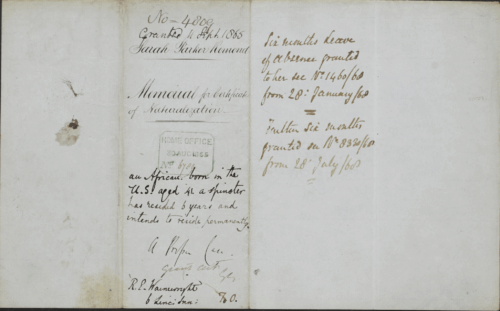 No 4809
Granted 4 Sept 1865
Sarah Parker Remond
Memorial for Certificate
of Naturalization
HOME OFFICE
an African born in the
U.S! aged 42 a spinster
has resided 6 years and
intends to reside permanently
A Proper Case
Grant Cert
R.P. Wainwright
6 Linc: Inn:
Six months leave
of absence granted
to her see No 1460/68
from 28: January/68
Further Six months
granted on No 8320/68
from 28 July/68